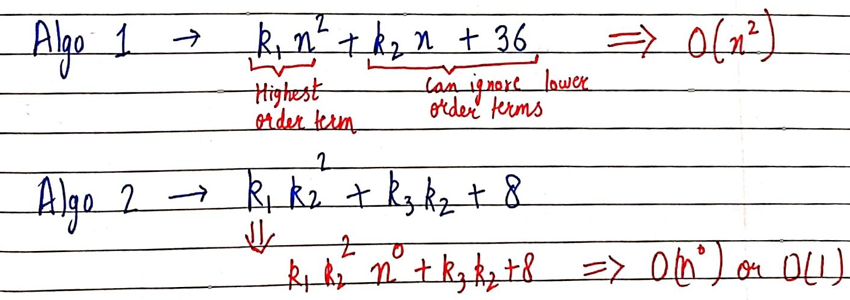 Algo 1 → k₁ n² + k₂ n + 36 ⟹ O(n²)
Highest order term
can ignore lower order terms
Algo 2 → k₁ k₂² + k₃ k₂ + 8
⇓
k₁ k₂² n⁰ + k₃ k₂ + 8 ⟹ O(n⁰) or O(1)